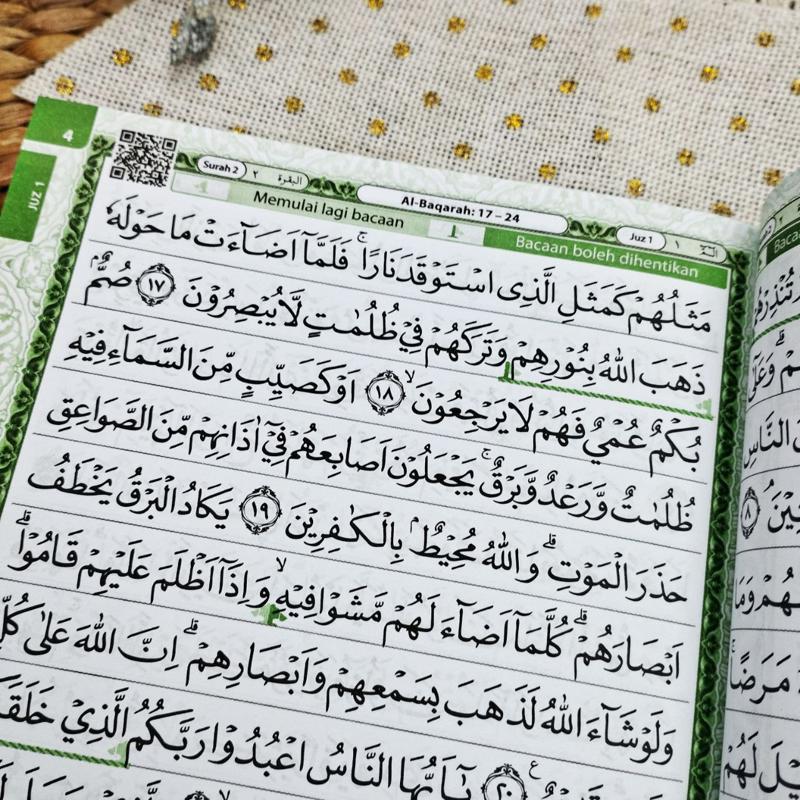 4
JUZ 1
Surah 2 ٢ البقرة
Al-Baqarah: 17 – 24
Juz 1 ١
Memulai lagi bacaan
Bacaan boleh dihentikan
مَثَلُهُمْ كَمَثَلِ الَّذِى اسْتَوْقَدَ نَارًاۚ فَلَمَّآ اَضَاۤءَتْ مَا حَوْلَهٗ
ذَهَبَ اللّٰهُ بِنُوْرِهِمْ وَتَرَكَهُمْ فِيْ ظُلُمٰتٍ لَّا يُبْصِرُوْنَ ١٧ صُمٌّۢ
بُكْمٌ عُمْيٌ فَهُمْ لَا يَرْجِعُوْنَۙ ١٨ اَوْ كَصَيِّبٍ مِّنَ السَّمَاۤءِ فِيْهِ
ظُلُمٰتٌ وَّرَعْدٌ وَّبَرْقٌۚ يَجْعَلُوْنَ اَصَابِعَهُمْ فِيْٓ اٰذَانِهِمْ مِّنَ الصَّوَاعِقِ
حَذَرَ الْمَوْتِۗ وَاللّٰهُ مُحِيْطٌۢ بِالْكٰفِرِيْنَ ١٩ يَكَادُ الْبَرْقُ يَخْطَفُ
اَبْصَارَهُمْۗ كُلَّمَآ اَضَاۤءَ لَهُمْ مَّشَوْا فِيْهِۙ وَاِذَآ اَظْلَمَ عَلَيْهِمْ قَامُوْاۗ
وَلَوْ شَاۤءَ اللّٰهُ لَذَهَبَ بِسَمْعِهِمْ وَاَبْصَارِهِمْۗ اِنَّ اللّٰهَ عَلٰى
٢٠ يٰٓاَيُّهَا النَّاسُ اعْبُدُوْا رَبَّكُمُ الَّذِيْ